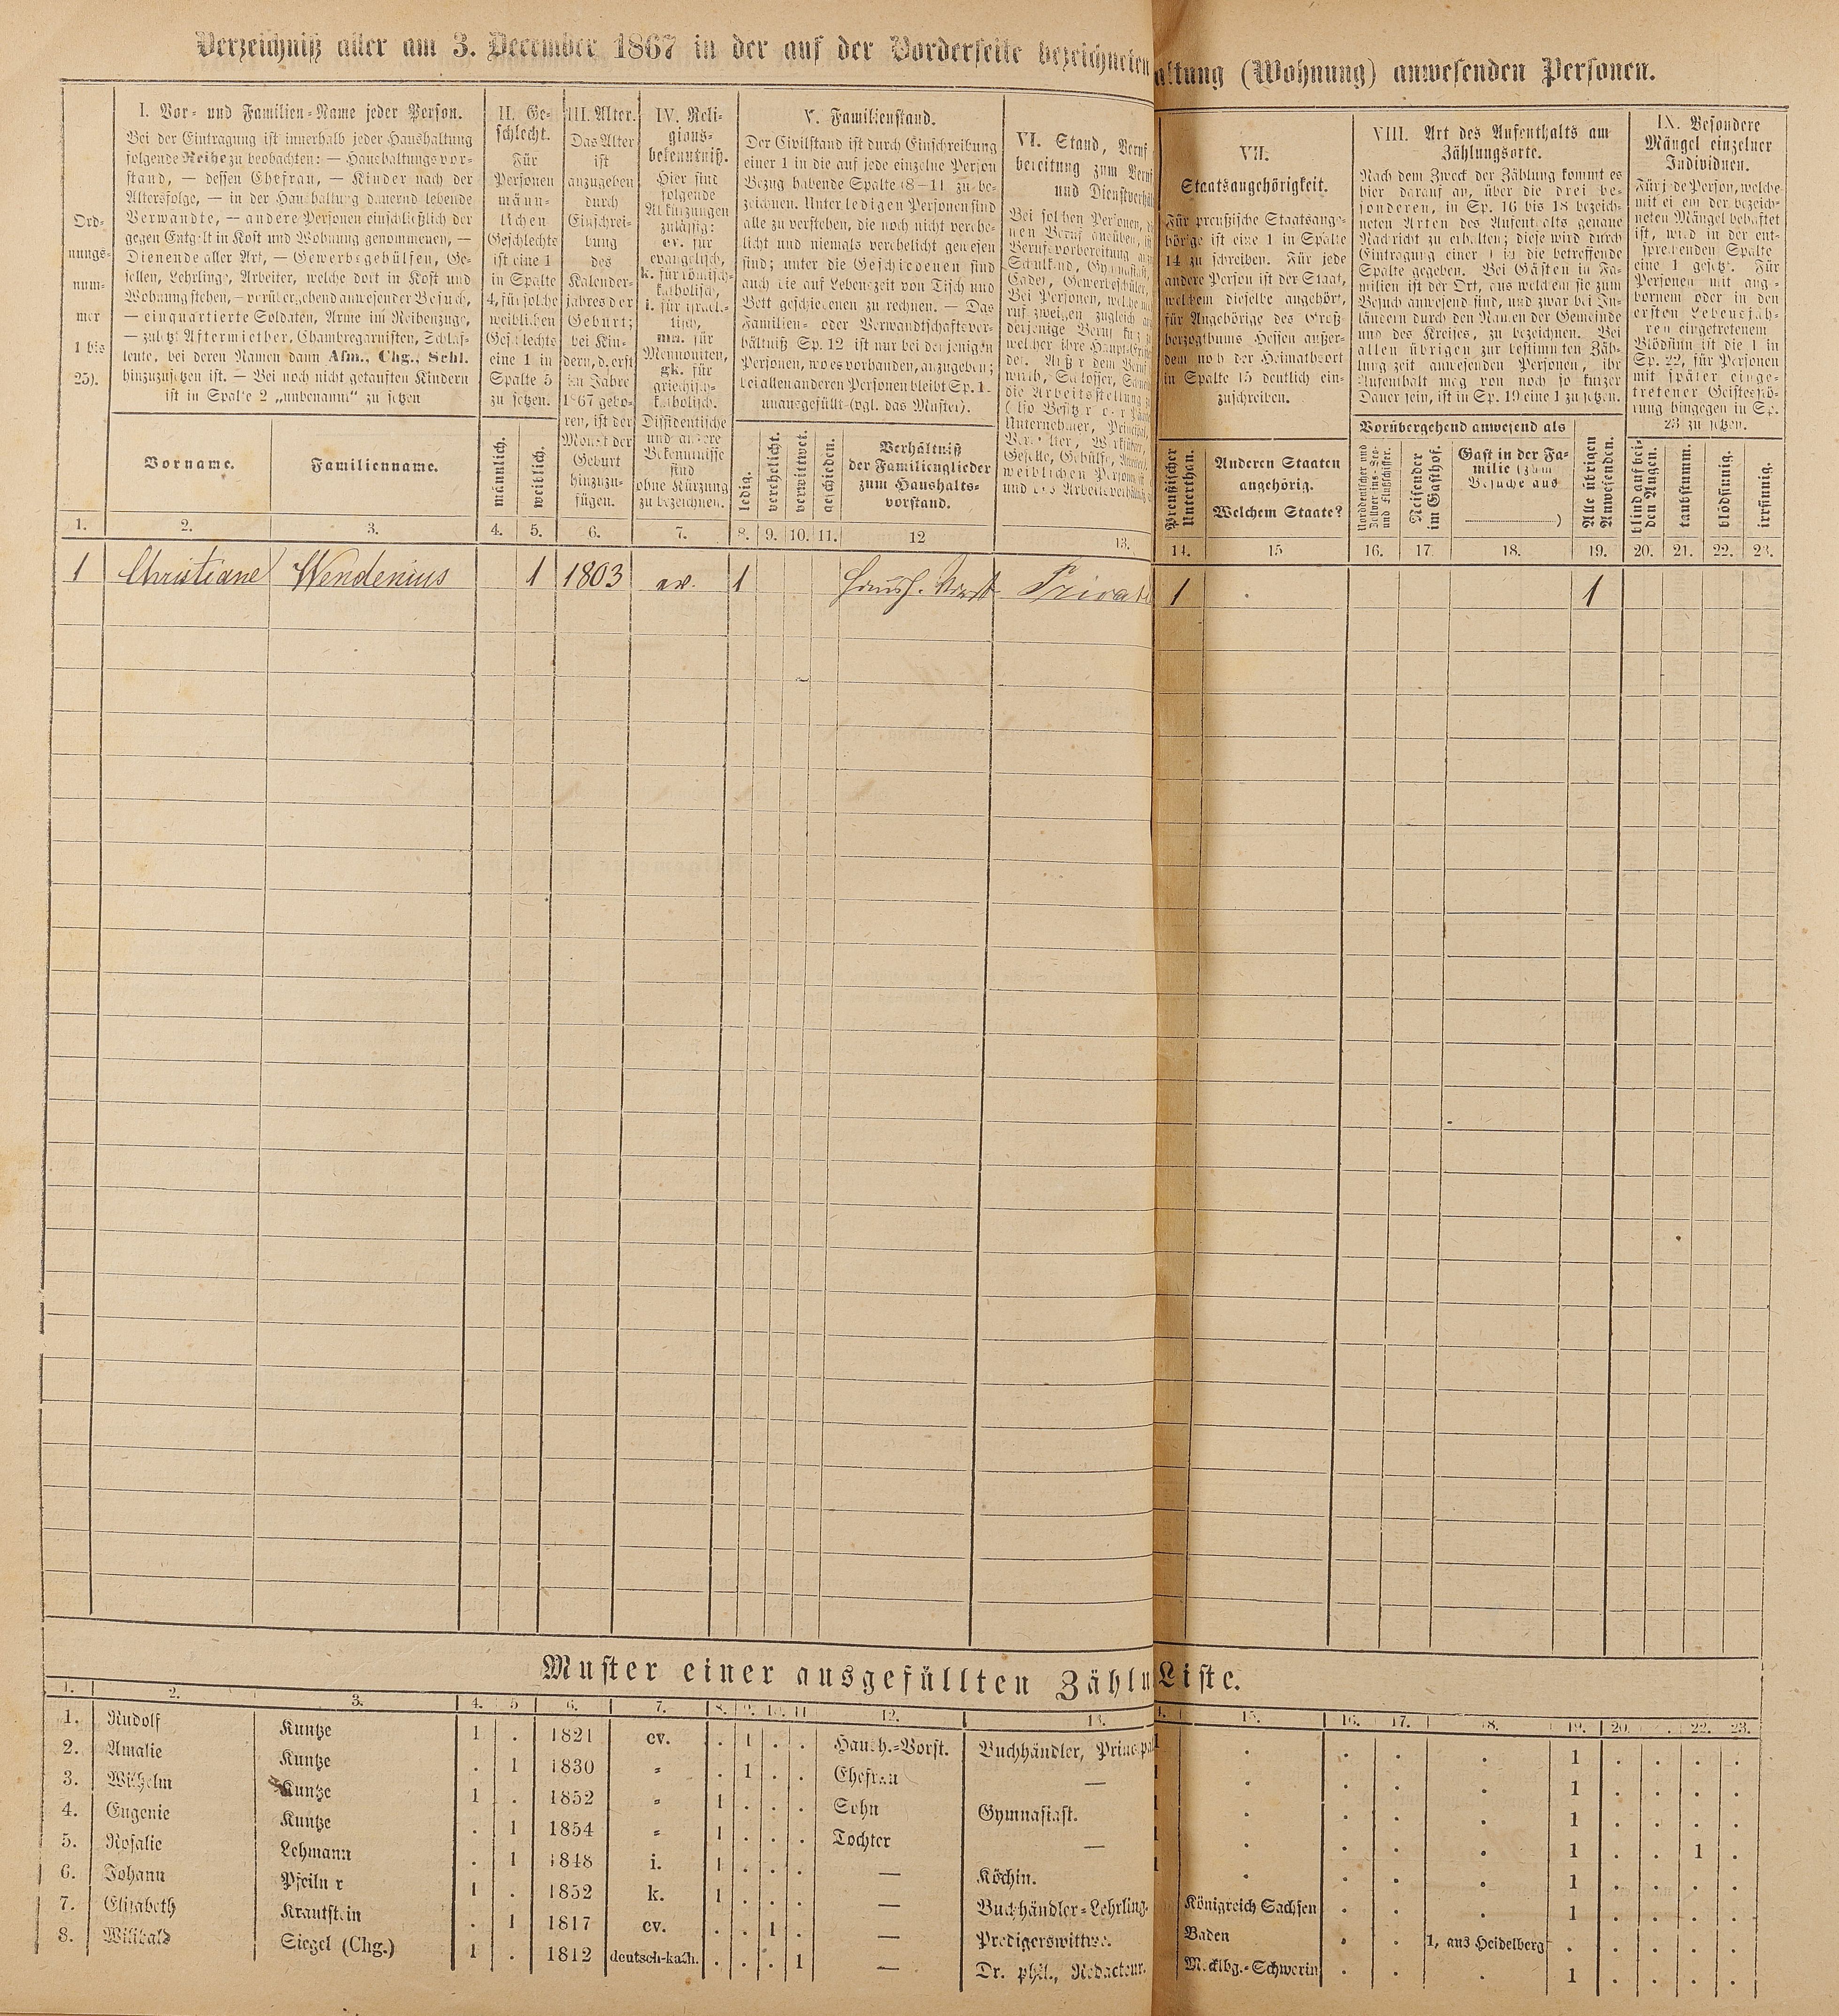 Verzeichniß aller am 3. December 1867 in der auf der Vorderseite bezeichneten
altung (Wohnung) anwesenden Personen.
Ord-
nungs-
num-
mer
1 bis
25).
I. Vor- und Familien-Name jeder Person.
Bei der Eintragung ist innerhalb jeder Haushaltung
folgende Reihe zu beobachten: — Haushaltungsvor-
stand, — dessen Ehefrau, — Kinder nach der
Altersfolge, — in der Haushaltung dauernd lebende
Verwandte, — andere Personen einschließlich der
gegen Entgelt in Kost und Wohnung genommenen, —
Dienende aller Art, — Gewerbsgehülfen, Ge-
sellen, Lehrlinge, Arbeiter, welche dort in Kost und
Wohnung stehen, — vorübergehend anwesender Besuch,
— einquartierte Soldaten, Arme im Reihenzuge,
— zuletzt Aftermiether, Chambregarnisten, Schlaf-
leute, bei deren Namen dann Afm., Chg., Schl.
hinzuzusetzen ist. — Bei noch nicht getauften Kindern
ist in Spalte 2 „unbenannt“ zu setzen
Vorname.
Familienname.
II. Ge-
schlecht.
Für
Personen
männ-
lichen
Geschlechts
ist eine 1
in Spalte
4, für solche
weiblichen
Geschlechts
eine 1 in
Spalte 5
zu setzen.
männlich.
weiblich.
III. Alter.
Das Alter
ist
anzugeben
durch
Einschrei-
bung
des
Kalender-
jahres der
Geburt;
bei Kin-
dern, d. erst
im Jahre
1867 gebo-
ren, ist der
Monat der
Geburt
hinzuzu-
fügen.
IV. Reli-
gions-
bekenntniß.
Hier sind
folgende
Abkürzungen
zulässig:
ev. für
evangelisch,
k. für römisch-
katholisch,
i. für israel-
itisch,
mn. für
Mennoniten,
gk. für
griechisch-
katholisch.
Dissidentische
und andere
Bekenntnisse
sind
ohne Kürzung
zu bezeichnen.
V. Familienstand.
Der Civilstand ist durch Einschreibung
einer 1 in die auf jede einzelne Person
Bezug habende Spalte (8—11) zu be-
zeichnen. Unter ledigen Personen sind
alle zu verstehen, die noch nicht verehe-
licht und niemals verehelicht gewesen
sind; unter die Geschiedenen sind
auch die auf Lebenszeit von Tisch und
Bett geschiedenen zu rechnen. — Das
Familien- oder Verwandtschaftsver-
hältniß Sp. 12 ist nur bei denjenigen
Personen, wo es vorhanden, anzugeben;
bei allen anderen Personen bleibt Sp. 1
unausgefüllt (vgl. das Muster).
ledig.
verehelicht.
verwittwet.
geschieden.
Verhältniß
der Familienglieder
zum Haushalts-
vorstand.
VI. Stand, Beruf
bereitung zum Beruf
und Dienstverhäl
Bei solchen Personen,
nen Beruf ausüben,
Berufsvorbereitung
Schulkind, Gymnasiast,
Cadet, Gewerbeschüler,
Bei Personen, welche
ruf zweigen zugleich
derjenige Beruf
welcher ihre Haupt-
den. Außer dem Beruf
wirth, Schlosser,
die Arbeitsstellung
(also Besitzer oder
Unternehmer, Principal,
Verwalter, Werkführer,
Geselle, Gehülfe,
weiblichen Personen
und das Arbeitsverhältniß
VII.
Staatsangehörigkeit.
Für preußische Staatsange-
hörige ist eine 1 in Spalte
14 zu schreiben. Für jede
andere Person ist der Staat,
welchem dieselbe angehört,
für Angehörige des Groß-
herzogthums Hessen außer-
dem noch der Heimathsort
in Spalte 15 deutlich ein-
zuschreiben.
Preußischer
Unterthan.
Anderen Staaten
angehörig.
Welchem Staate?
VIII. Art des Aufenthalts am
Zählungsorte.
Nach dem Zweck der Zählung kommt es
hier darauf an, über die drei be-
sonderen, in Sp. 16 bis 18 bezeich-
neten Arten des Aufenthalts genaue
Nachricht zu erhalten; diese wird durch
Eintragung einer 1 in die betreffende
Spalte gegeben. Bei Gästen in Fa-
milien ist der Ort, aus welchem sie zum
Besuch anwesend sind, und zwar bei In-
ländern durch den Namen der Gemeinde
und des Kreises, zu bezeichnen. Bei
allen übrigen zur bestimmten Zäh-
lungszeit anwesenden Personen, ihr
Aufenthalt mag von noch so kurzer
Dauer sein, ist in Sp. 19 eine 1 zu setzen.
Vorübergehend anwesend als
Norddeutscher und
Zollvereins-See-
und Flußschiffer.
Reisender
im Gasthof.
Gast in der Fa-
milie (zum
Besuche aus
)
Alle übrigen
Anwesenden.
IX. Besondere
Mängel einzelner
Individuen.
Für jede Person, welche
mit einem der bezeich-
neten Mängel behaftet
ist, wird in der ent-
sprechenden Spalte
eine 1 gesetzt. Für
Personen mit ange-
bornem oder in den
ersten Lebensjah-
ren eingetretenem
Blödsinn ist die 1 in
Sp. 22, für Personen
mit später einge-
tretener Geistesstö-
rung hingegen in Sp.
23 zu setzen.
blind auf bei-
den Augen.
taubstumm.
blödsinnig.
irrsinnig.
1. 2. 3. 4. 5. 6. 7. 8. 9. 10. 11. 12 13. 14. 15 16. 17. 18. 19. 20. 21. 22. 23.
1 Christiane Wendenius 1 1803 ev. 1 Haush. Vorst Privat 1 1
Muster einer ausgefüllten Zählu Liste.
1. 2. 3. 4. 5 6. 7. 8. 9. 10. 11 12. 13. 15. 16. 17. 18. 19. 20. 22. 23.
1. Rudolf Kuntze 1 . 1821 ev. . 1 . . Haush.-Vorst. Buchhändler, Principal 1 . . . . 1 . . . .
2. Amalie Kuntze . 1 1830 „ . 1 . . Ehefrau — 1 . . . . 1 . . . .
3. Wilhelm Kuntze 1 . 1852 „ 1 . . . Sohn Gymnasiast. 1 . . . . 1 . . . .
4. Eugenie Kuntze . 1 1854 „ 1 . . . Tochter — 1 . . . . 1 . . 1 .
5. Rosalie Lehmann . 1 1848 i. 1 . . . — Köchin. 1 . . . . 1 . . . .
6. Johann Pfeilner 1 . 1852 k. 1 . . . — Buchhändler-Lehrling. Königreich Sachsen . . . 1 . . . .
7. Elisabeth Krautstein . 1 1817 ev. . . 1 . — Predigerswittwe. Baden . . 1, aus Heidelberg . . . . .
8. Wilibald Siegel (Chg.) 1 . 1812 deutsch-kath. . . . 1 — Dr. phil., Redacteur. Mecklbg.-Schwerin . . . 1 . . . .